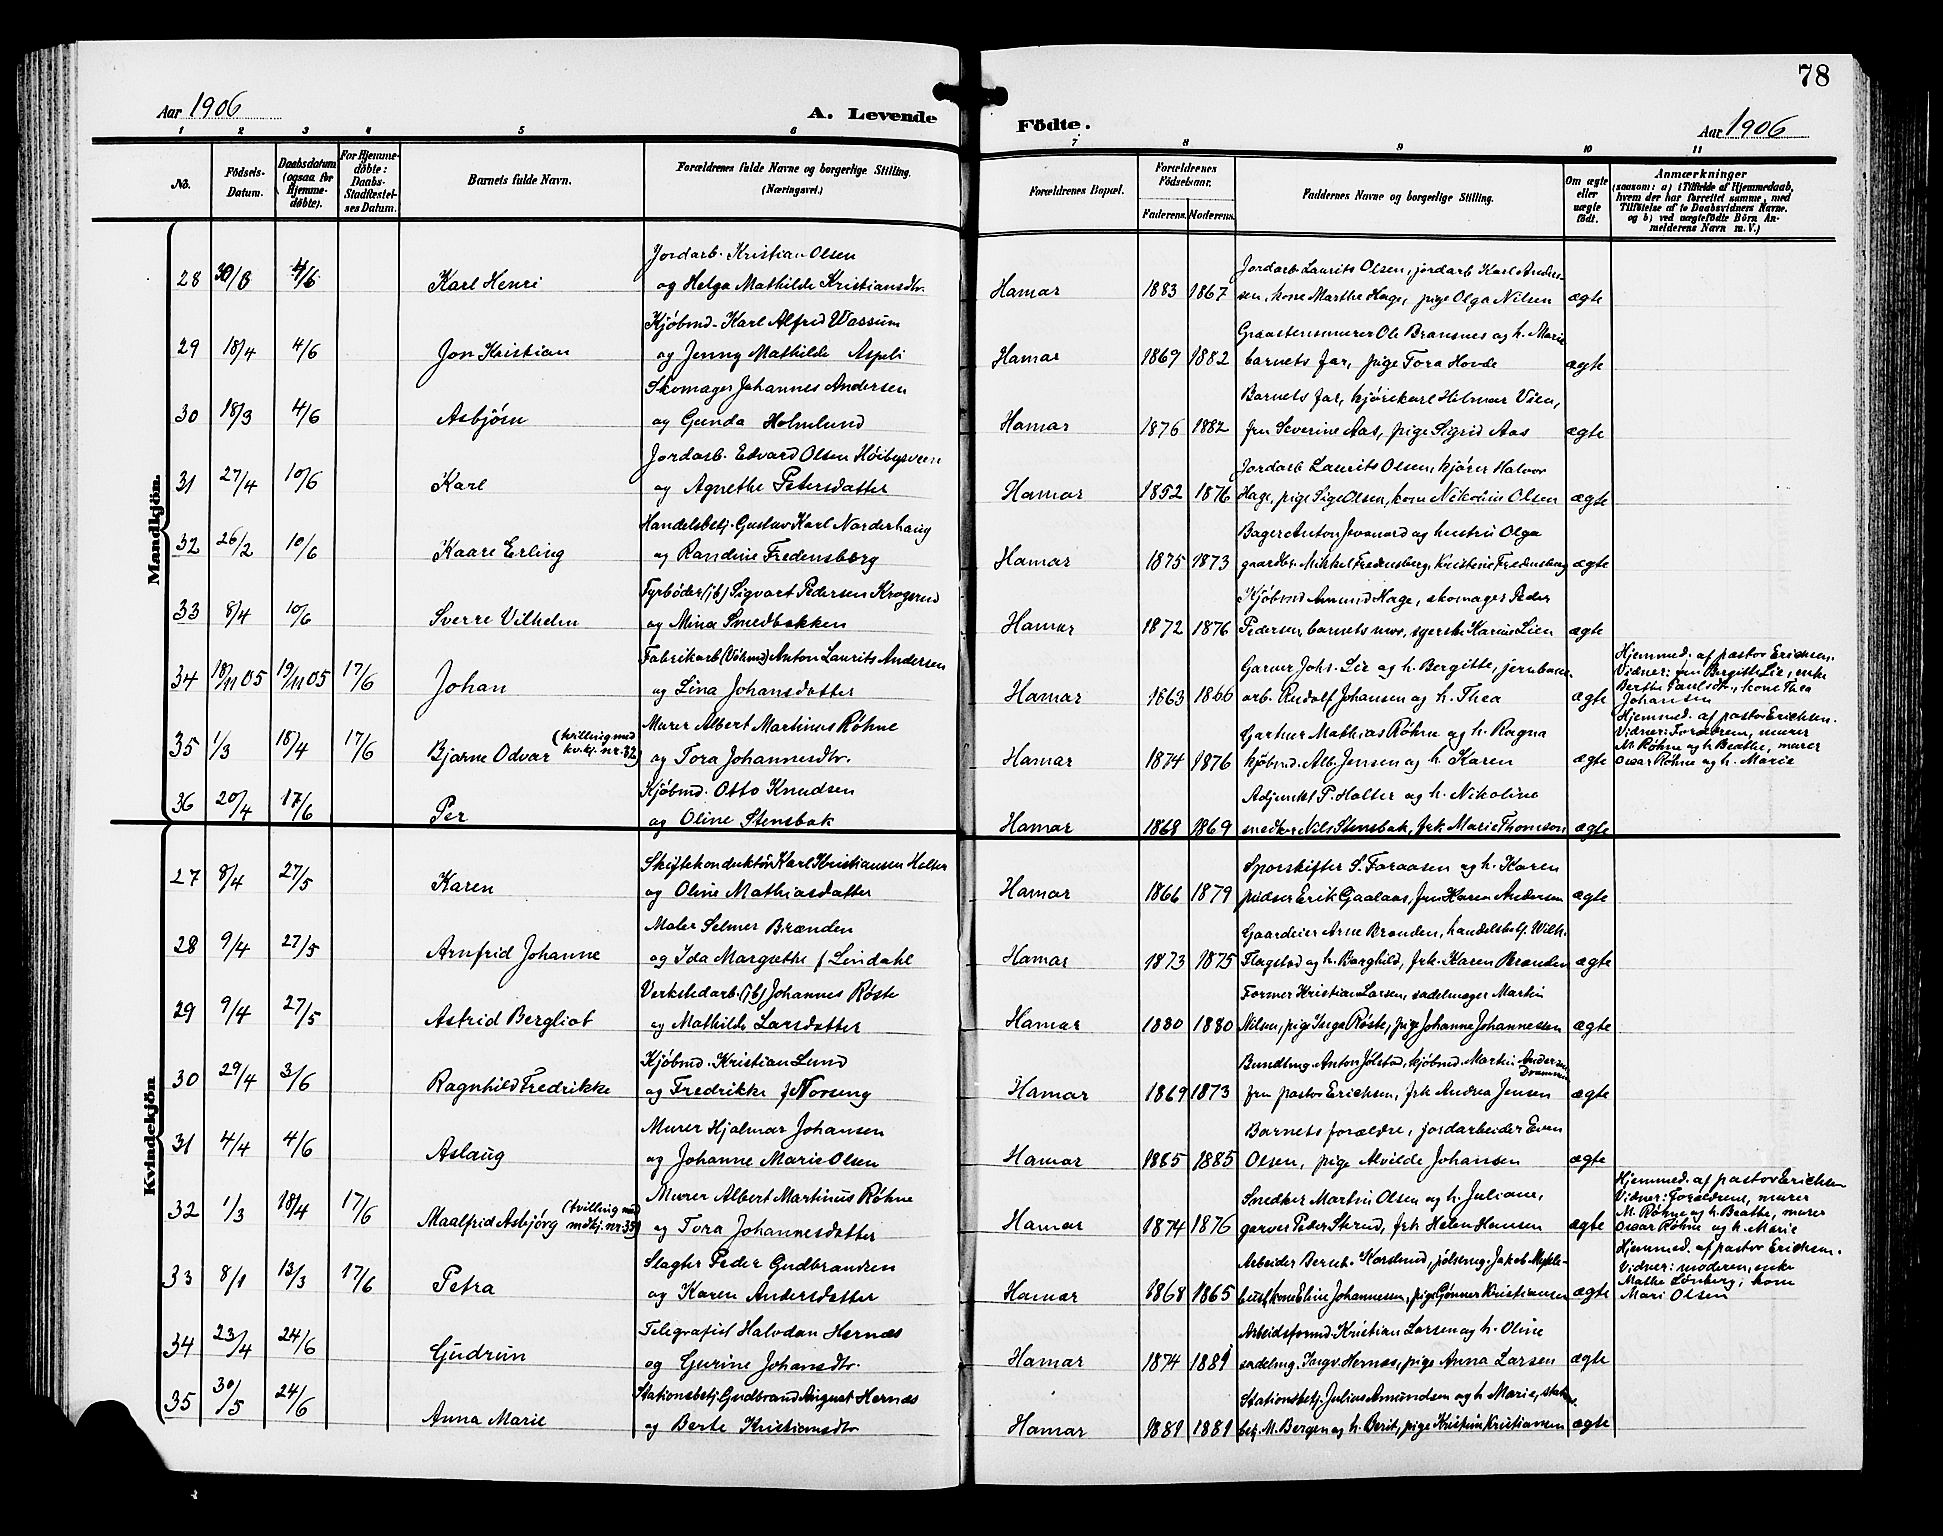 78
Aar 1906
A. Levende Födte.
Aar 1906
1 2 3 4 5 6 7 8 9 10 11
No.
Födsels-Datum.
Daabsdatum (ogsaa for Hjemme-döbte).
For Hjemme-döbte: Daabs-Stadfæstel-ses Datum.
Barnets fulde Navn.
Forældrenes fulde Navne og borgerlige Stilling.
(Næringsvei.)
Forældrenes Bopæl.
Forældrenes Födselsaar.
Faderens. Moderens.
Faddernes Navne og borgerlige Stilling.
Om ægte eller uægte födt.
Anmærkninger
(saasom: a) i Tilfælde af Hjemmedaab,
hvem der har forrettet samme, med
Tilföielse af to Daabsvidners Navne.
og b) ved uægtefödte Börn An-
melderens Navn m. V.)
Mandkjön.
Jordarb. Kristian Olsen Jordarb. Laurits Olsen, jordarb Karl Ander-
28 4/6 Karl Henri og Helga Mathilde Kristiansdtr. Hamar 1883 1867 sen, kone Marthe Hage, pige Olga Nilsen ægte
Kjöbmd. Karl Alfred Wassum Graastensmurer Ole Bransnes og h. Marie
29 18/4 4/6 Jon Kristian og Jenny Mathilde Aspeli Hamar 1869 1882 barnets far, pige Tora Hovde ægte
Skomager Johannes Andersen Barnets far, kjörekarl Hilmar Vien,
30 18/3 4/6 Asbjörn og Gunda Holmlund Hamar 1876 1882 fru Severine Aas, pige Sigrid Aas ægte
Jordarb. Edvard Olsen Höibysveen Jordarb Laurits Olsen, kjörer Halvor
31 27/4 10/6 Karl og Agnethe Petersdatter Hamar 1852 1876 Hage, pige Sige Olsen, kone Nikoline Olsen ægte
Handelsbetj. Gustav Karl Norderhaug Bager Anton og hustru Olga
32 26/2 10/6 Kaare Erling og Randine Fredensborg Hamar 1875 1873 gaardbr. Mikkel Fredensberg, Kristine Fredensberg ægte
Fyrböder (jb) Sigvart Pedersen Krogsrud Kjöbmd Amund Hage, skomager Peder
33 8/4 10/6 Sverre Vilhelm og Mina Smedbakken Hamar 1872 1876 Pedersen, barnets mor, syerske Karine Lien ægte
Fabrikarb (Vöhmd) Anton Laurits Andersen Garver Johs. Lie og h. Bergitte, jernbane- Hjemmed. af pastor Erichsen.
34 18/11 05 19/11 05 17/6 Johan og Lina Johansdatter Hamar 1863 1866 arb. Rudolf Johansen og h. Thea ægte Vidner: fru Bergitte Lie, enke
Berthe Paulsdtr., kone Thea
Johansen
Murer Albert Martinus Röhne Gartner Mathias Röhne og h. Ragna Hjemmed. af pastor Erichsen.
35 1/3 18/4 17/6 Bjarne Odvar (tvilling med kv.kj. nr. 32) og Tora Johannesdtr. Hamar 1874 1876 kjöbmd. Alb. Jensen og h. Karen ægte Vidner: Forældrene, murer
M. Röhne og h. Beathe, murer
Oscar Röhne og h. Marie
Kjöbmd. Otto Knudsen Adjunkt P. Holter og h. Nikoline
36 20/4 17/6 Per og Oline Stensbak Hamar 1868 1869 snedker Nils Stensbak, frk. Marie Thomson ægte
Kvindekjön
Skiftekonduktör Karl Kristiansen Holter Sporskifter S. Foraasen og h. Karen
27 8/4 27/5 Karen og Oline Mathiasdatter Hamar 1866 1879 pudser Erik Gaalaas, fru Karen Andersen ægte
Maler Selmer Brænden Gaardeier Arne Brænden, handelsbetj. Wilh.
28 9/4 27/5 Arnfrid Johanne og Ida Margrethe f Lindahl Hamar 1873 1875 Flagstad og h. Borghild, frk. Karen Brænden ægte
Verkstedarb. (jb) Johannes Röste Former Kristian Larsen, sadelmager Martin
29 9/4 27/5 Astrid Bergliot og Mathilde Larsdatter Hamar 1880 1880 Nilsen, pige Inga Röste, pige Johanne Johannessen ægte
Kjöbmd. Kristian Lund Bundtmg. Anton Jölstad, kjöbmd. Martin Andersen Drammen
30 29/4 3/6 Ragnhild Fredrikke og Fredrikke f Norseng Hamar 1869 1873 fru pastor Erichsen, frk Andrea Jensen ægte
Murer Hjalmar Johansen Barnets forældre, jordarbeider Even
31 4/4 4/6 Aslaug og Johanne Marie Olsen Hamar 1885 1885 Olsen, pige Alvilde Johansen ægte
Murer Albert Martinus Röhne Snedker Martin Olsen og h. Juliane, Hjemmed. af pastor Erichsen
32 1/3 18/4 17/6 Maalfrid Asbjörg (tvilling med mdkj. nr. 35) og Tora Johannesdatter Hamar 1874 1876 garver Peder Strud, frk Helen Hansen ægte Vidner: Forældrene, murer
M. Röhne og h. Beathe, murer
Oscar Röhne og h. Marie
Slagter Peder Gudbrandsen Arbeider Bernt. Korslund, pölsemg. Jakob Mykle- Hjemmed. af pastor Erichsen.
33 8/1 13/3 17/6 Petra og Karen Andersdatter Hamar 1868 1865 bust, kone Eline Johannesen, pige Gönner Kristiansen ægte Vidner: moderen, enke
Mathe Lönberg, kone
Mari Olsen
Telegrafist Halvdan Hernæs Arbeidsformd. Kristian Larsen og h. Oline
34 23/4 24/6 Gudrun og Gurine Johansdtr. Hamar 1874 1881 sadelmg. Ingv. Hernæs, pige Anna Larsen ægte
Stationsbetj. Gudbrand August Hernæs Stationsbetj. Julius Amundsen og h. Marie, stat.
35 30/5 24/6 Anna Marie og Berte Kristiansdtr Hamar 1881 1881 betj. M. Bergen og h. Berit, pige Kristine Kristiansen ægte